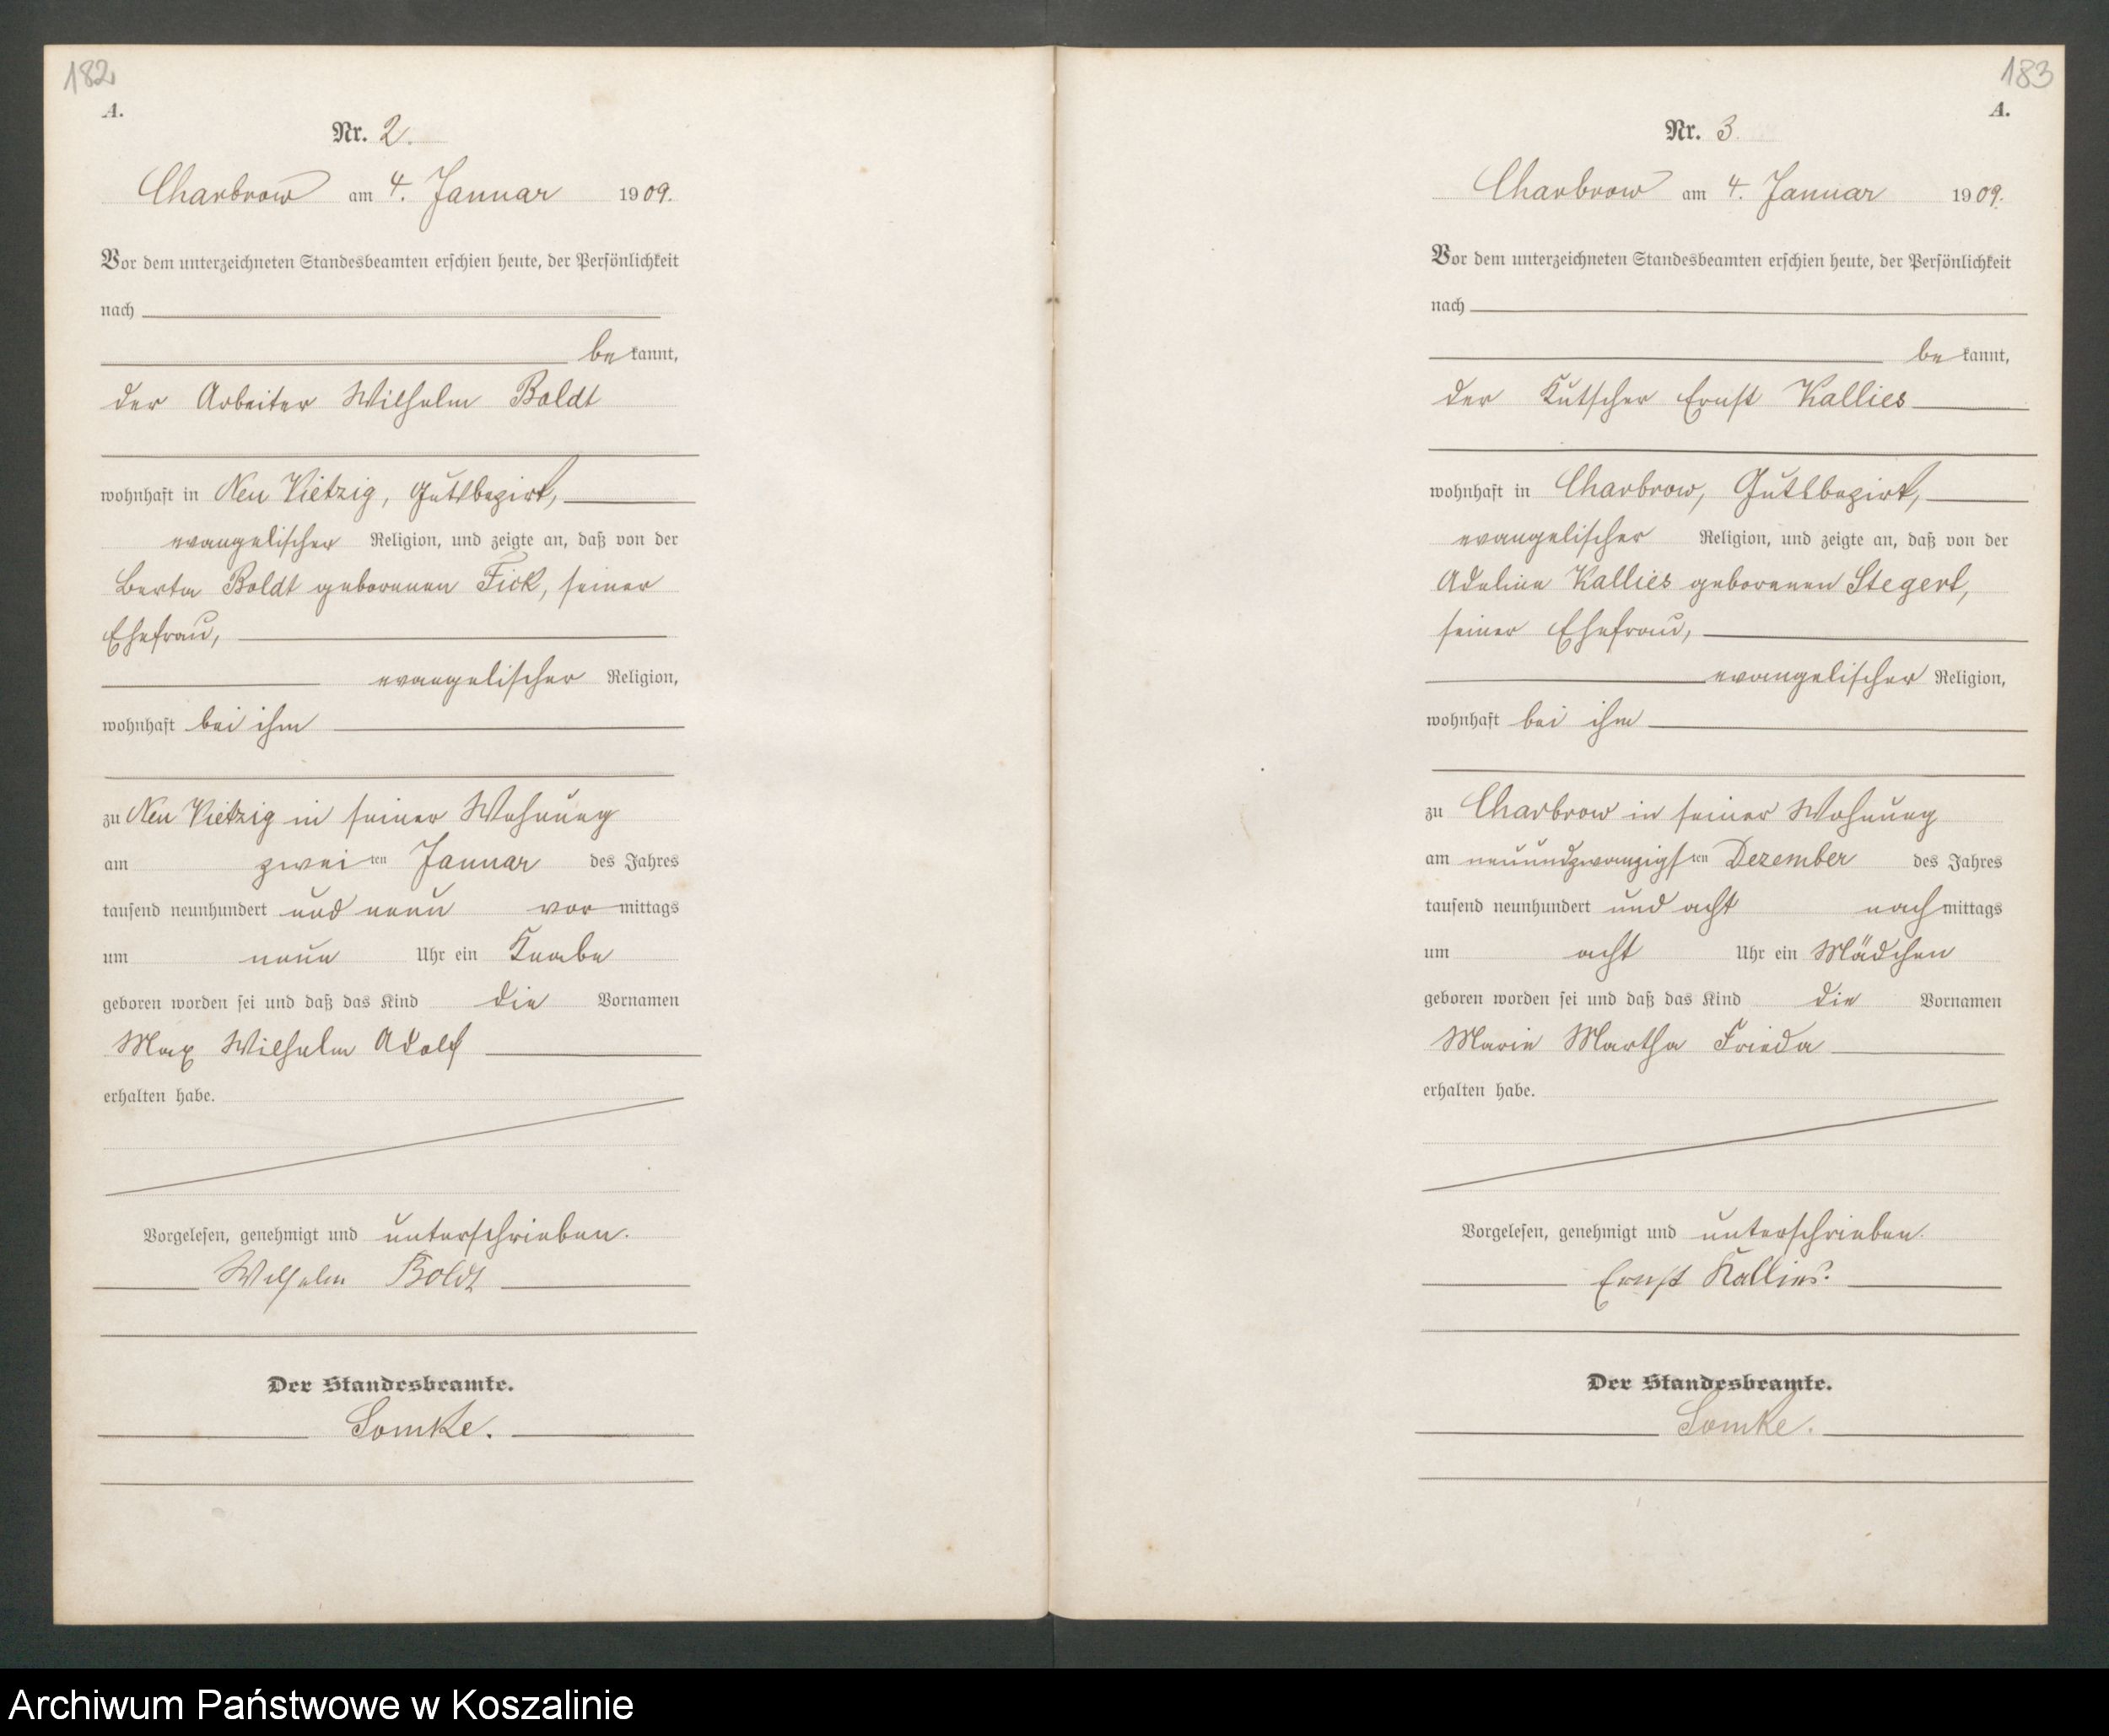 182
A.
Nr. 2.
Charbrow am 4. Januar 1909.
Vor dem unterzeichneten Standesbeamten erschien heute, der Persönlichkeit
nach
be kannt,
der Arbeiter Wilhelm Boldt
wohnhaft in Neu Vietzig, Gutsbezirk,
evangelischer Religion, und zeigte an, daß von der
Berta Boldt geborenen Fick, seiner
Ehefrau,
evangelischer Religion,
wohnhaft bei ihm
zu Neu Vietzig in seiner Wohnung
am zwei ten Januar des Jahres
tausend neunhundert und neun vor mittags
um neun Uhr ein Knabe
geboren worden sei und daß das Kind die Vornamen
Max Wilhelm Adolf
erhalten habe.
Vorgelesen, genehmigt und unterschrieben.
Wilhelm Boldt
Der Standesbeamte.
Somke.
183
A.
Nr. 3.
Charbrow am 4. Januar 1909.
Vor dem unterzeichneten Standesbeamten erschien heute, der Persönlichkeit
nach
be kannt,
der Kutscher Ernst Kallies
wohnhaft in Charbrow, Gutsbezirk,
evangelischer Religion, und zeigte an, daß von der
Adeline Kallies geborenen Stegert,
seiner Ehefrau,
evangelischer Religion,
wohnhaft bei ihm
zu Charbrow in seiner Wohnung
am neunundzwanzigs ten Dezember des Jahres
tausend neunhundert und acht nach mittags
um acht Uhr ein Mädchen
geboren worden sei und daß das Kind die Vornamen
Marie Martha Frieda
erhalten habe.
Vorgelesen, genehmigt und unterschrieben.
Ernst Kallies.
Der Standesbeamte.
Somke.
Archiwum Państwowe w Koszalinie